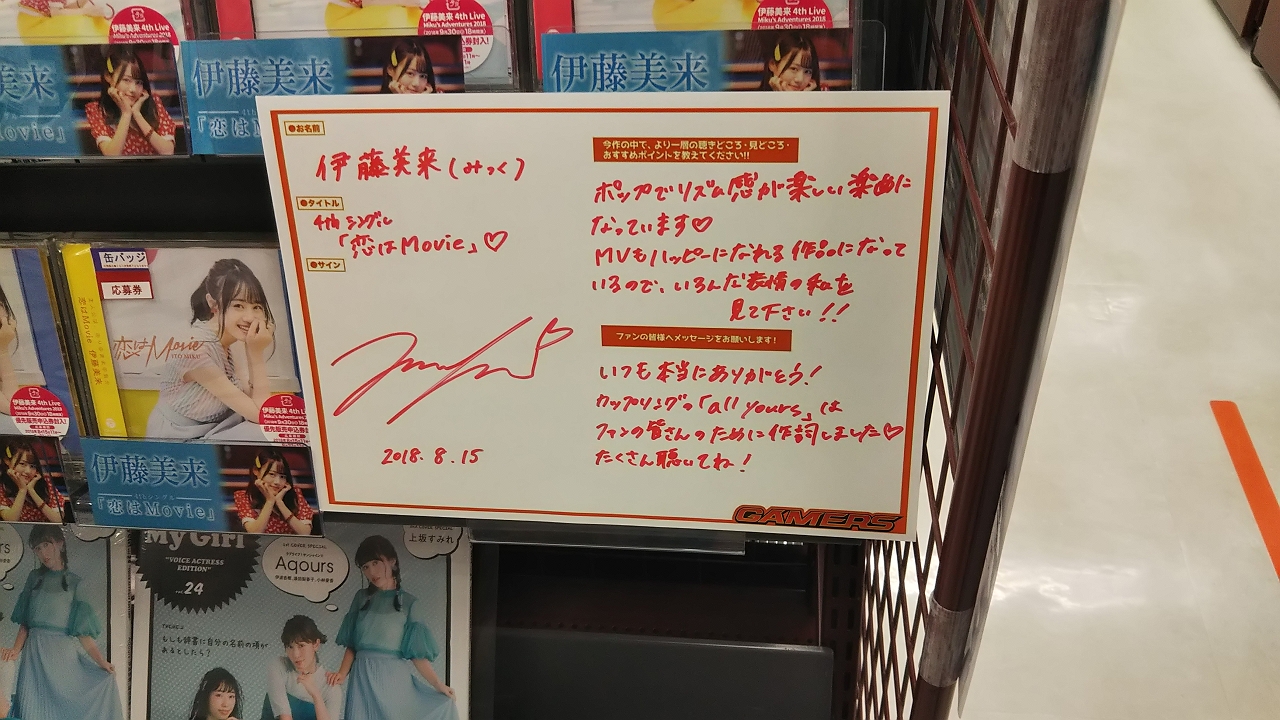 伊藤美来 4th Live
Miku's Adventures 2018
伊藤美来 4th Live
Miku's Adventures 2018
(2018年9月30日18時開演)
伊藤美来 4th Live
Miku's Adventures 2018
伊藤美来
伊藤美来
伊藤美来
Movie」
「恋は
●お名前
伊藤美来(みっく)
●タイトル
4th シングル
「恋はMovie」♡
●サイン
2018. 8. 15
今作の中で、より一層の聴きどころ・見どころ・
おすすめポイントを教えてください!!
ポップでリズム感が楽しい楽曲に
なっています♡
MVもハッピーになれる作品になって
いるので、いろんな表情の私を
見て下さい!!
ファンの皆様へメッセージをお願いします!
いつも本当にありがとう!
カップリングの「all yours」は
ファンの皆さんのために作詞しました♡
たくさん聴いてね!
GAMERS
缶バッジ
応募券
恋はMovie
ITO MIKU
恋はMovie 伊藤美来
伊藤美来 4th Live
Miku's Adventures 2018
(2018年9月30日18時開演)
優先販売申込券封入!
伊藤美来
4thシングル
「恋はMovie」
My Girl
"VOICE ACTRESS
EDITION"
VOL.24
1st COVER SPECIAL
Aqours
上坂すみれ
もしも辞書に自分の名前の項が
あるとしたら?